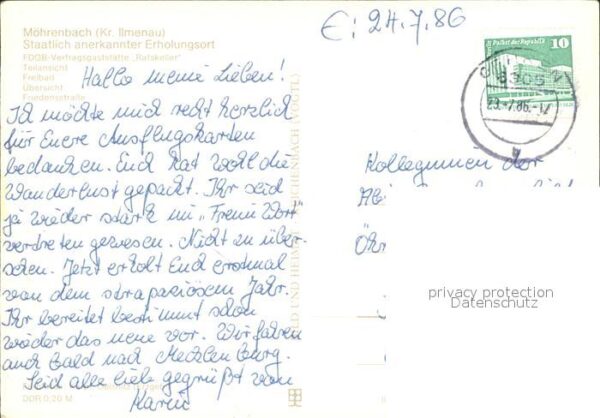 E: 24.7.86
Möhrenbach (Kr. Ilmenau)
Staatlich anerkannter Erholungsort
FDGB-Vertragsgaststätte „Ratskeller"
Teilansicht
Freibad
Übersicht
Friedensstraße
Palast der Republik
10
DDR
23.-7.86.-17
Hallo meine Lieben!
Ich möchte mich recht herzlich
für Euere Ausflugskarten
bedanken. Euch hat wohl die
Wanderlust gepackt. Ihr seid
ja wieder stark im „Freien Wort"
vertreten gewesen. Nicht zu über-
sehen. Jetzt erholt Euch erstmal
von dem strapaziösem Jahr.
Ihr bereitet bestimmt schon
wieder das neue vor. Wir fahren
auch bald nach Mecklenburg.
Seid alle liebe gegrüßt von
Karin
Kolleginnen der
BILD UND HEIMAT REICHENBACH (VOGTL)
privacy protection
Datenschutz
DDR 0,20 M